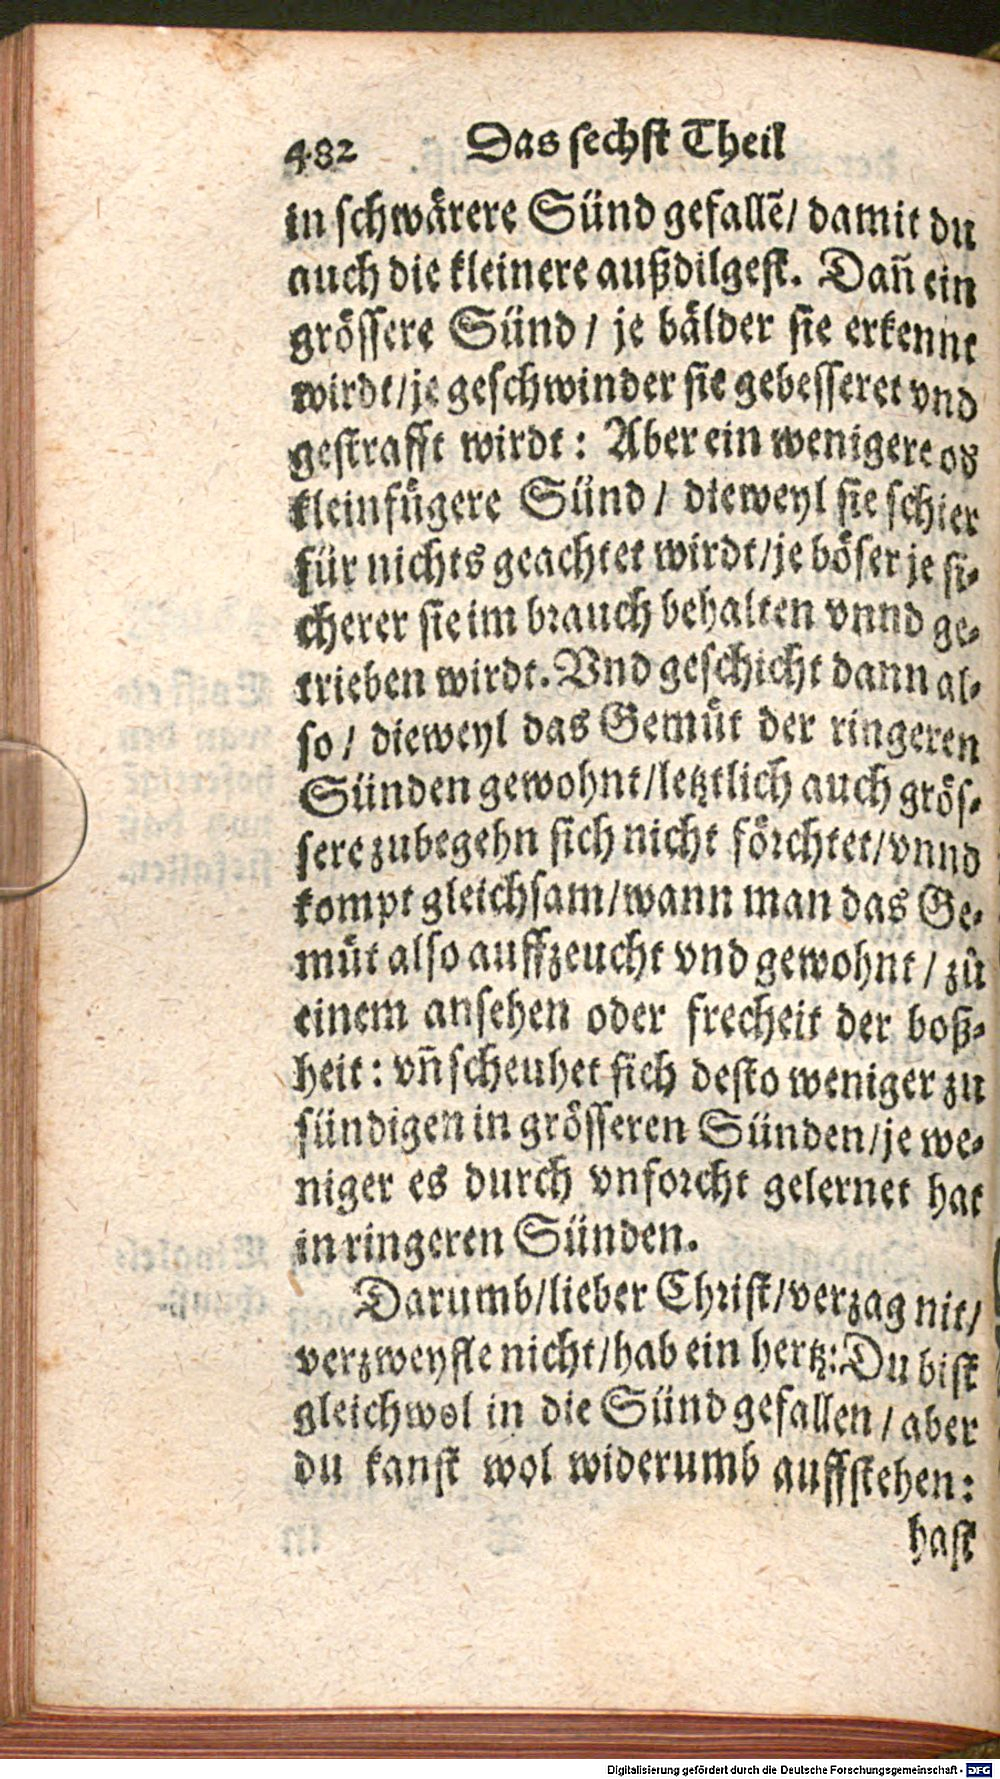 482 Das sechst Theil
in schwärere Sünd gefallẽ/ damit du
auch die kleinere außdilgest. Dañ ein
grössere Sünd / je bälder sie erkennt
wirdt/je geschwinder sie gebesseret vnd
gestrafft wirdt: Aber ein wenigere oð
kleinfügere Sünd / dieweyl sie schier
für nichts geachtet wirdt/je böser je si-
cherer sie im brauch behalten vnnd ge-
trieben wirdt. Vnd geschicht dann al-
so / dieweyl das Gemüt der ringeren
Sünden gewohnt/letztlich auch grös-
sere zubegehn sich nicht förchtet/vnnd
kompt gleichsam/wann man das Ge-
müt also auffzeucht vnd gewohnt / zů
einem ansehen oder frecheit der boß-
heit: vñ scheuhet sich desto weniger zu
sündigen in grösseren Sünden/je we-
niger es durch vnforcht gelernet hat
in ringeren Sünden.
Darumb/lieber Christ/verzag nit/
verzweyfle nicht/hab ein hertz: Du bist
gleichwol in die Sünd gefallen / aber
du kanst wol widerumb auffstehen:
hast
Digitalisierung gefördert durch die Deutsche Forschungsgemeinschaft - DFG